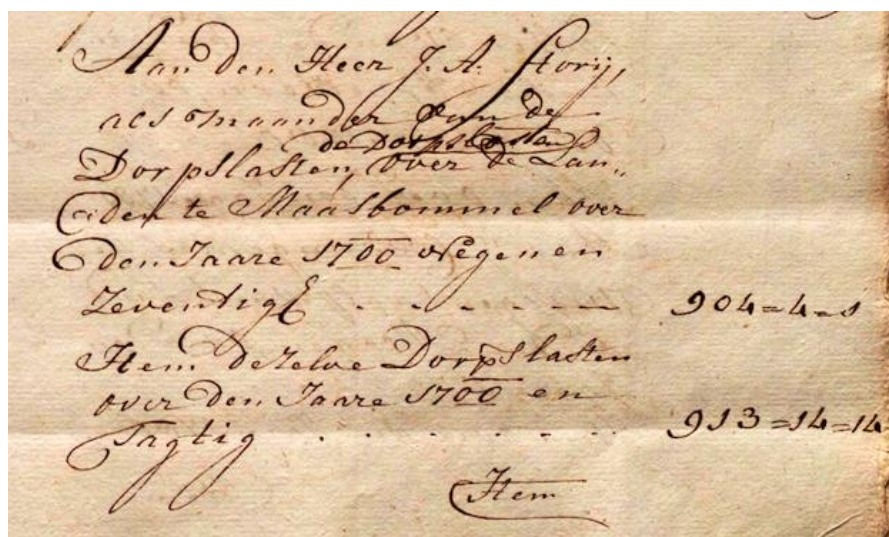 Aan den Heer J. A. Storij,
als maander van de
de Dorpslasten
Dorpslasten, over de Lan„
den te Maasbommel over
den Jaare 1700 Negen en
Zeventig . . - . - - — 904=4-1
Item dezelve Dorpslasten
over den Jaare 1700 en
Tagtig . . . . - . - . . 913=14=14
Item